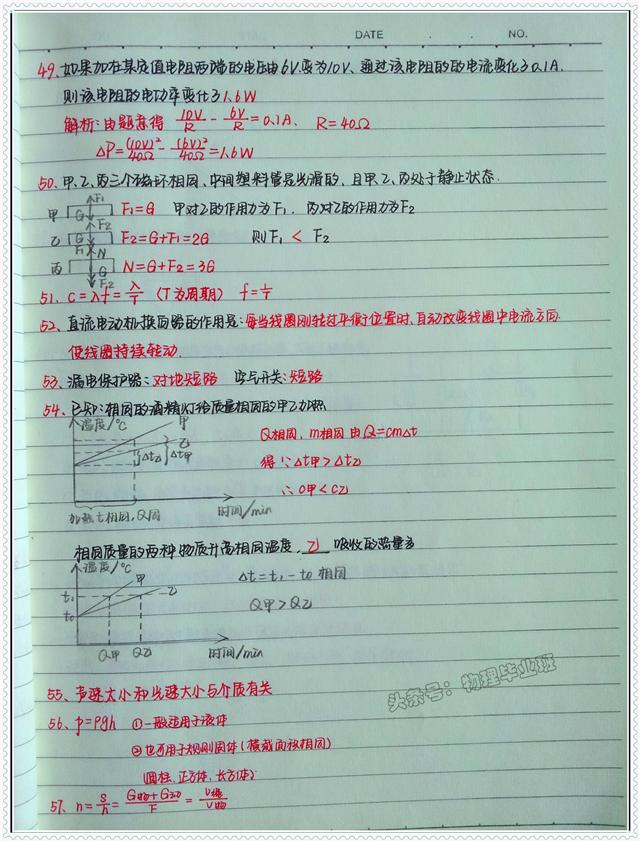 DATE . . NO.
49、如果加在某定值电阻两端的电压由6V变为10V、通过该电阻的的电流变化了0.1A.
则该电阻的电功率变化了1.6W
解析:由题意得 10V/R - 6V/R = 0.1A. R=40Ω
ΔP=(10V)²/40Ω - (6V)²/40Ω = 1.6W
50、甲、乙、丙三个磁环相同、中间塑料管是光滑的、且甲、乙、丙处于静止状态.
F1
甲 G F1=G 甲对乙的作用力为F1. 丙对乙的作用力为F2
F2
乙 G F2=G+F1=2G 则F1 < F2
F1 N
丙 G N=G+F2=3G
F2
51、c=λf=λ/T (T为周期) f=1/T
52、直流电动机换向器的作用是:每当线圈刚转过平衡位置时、自动改变线圈中电流方向
使线圈持续转动.
53、漏电保护器:对地短路 空气开关:短路
54、已知:相同的酒精灯给质量相同的甲乙加热
温度/℃ 甲
乙 Q相同、m相同 由Q=cmΔt
Δt乙 Δt甲 得∵Δt甲>Δt乙
∴C甲<C乙
加热t相同,Q同 时间/min
相同质量的两种物质升高相同温度、乙 吸收的热量多
温度/℃ 甲
t1 乙 Δt=t1-t0 相同
t0 Q甲>Q乙
Q甲 Q乙 时间/min
55、声速大小和光速大小与介质有关
头条号:物理毕业班
56、p=ρgh ①一般适用于液体
②也可用于规则固体(横截面积相同)
(圆柱、正方体、长方体)
57、n=S/h=(G物+G动)/F=V绳/V物